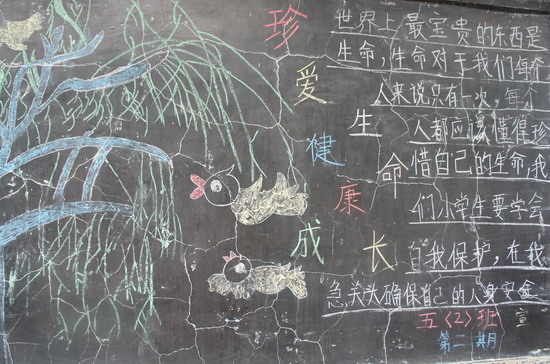 珍爱生命
健康成长
世界上最宝贵的东西是
生命,生命对于我们每个
人来说只有一次,每个
人都应该懂得珍
惜自己的生命,我
们小学生要学会
自我保护,在我
急关头确保自己的人身安全
五〈2〉班 宣
第二期